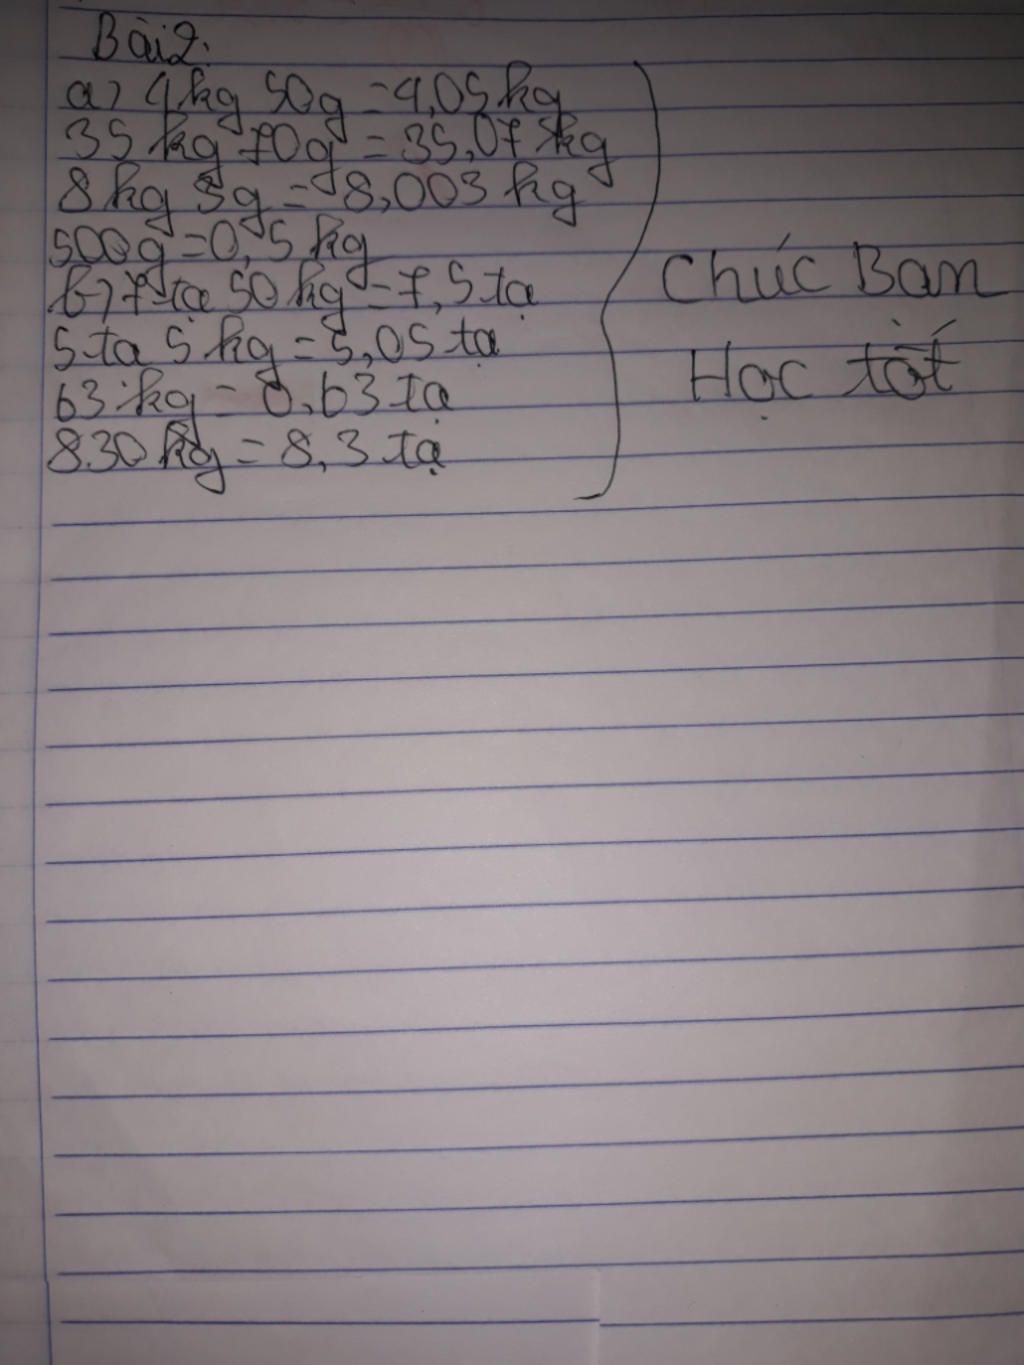 Bài 2:
a) 4kg 50g = 4,05 kg
35 kg 70g = 35,07 kg
8 kg 3g = 8,003 kg
500g = 0,5 kg
b) 7 tạ 50 kg = 7,5 tạ
5 tạ 5 kg = 5,05 tạ
63 kg = 0,63 tạ
830 kg = 8,3 tạ
Chúc Bạn
Học tốt